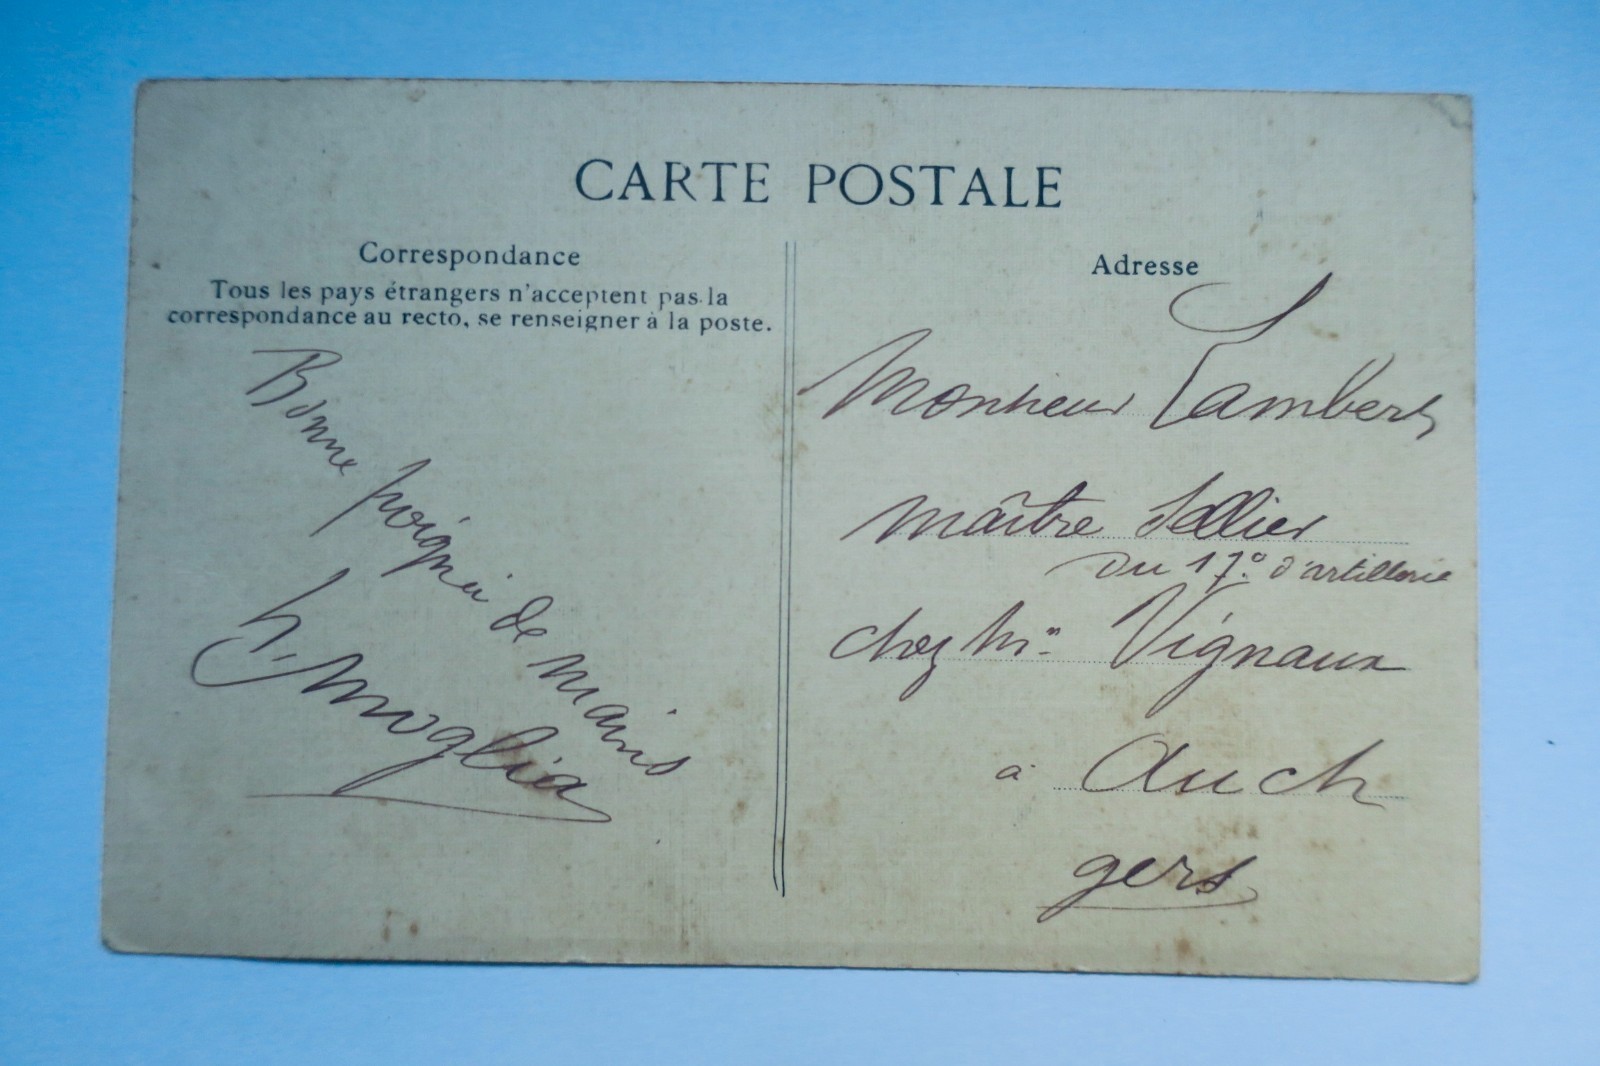 CARTE POSTALE
Correspondance
Tous les pays étrangers n'acceptent pas la
correspondance au recto, se renseigner à la poste.
Bonne poignée de mains
Moglia
Adresse
Monsieur Lambert
maître Sellier
du 17e d'artillerie
chez Mr Vignaux
à Auch
gers